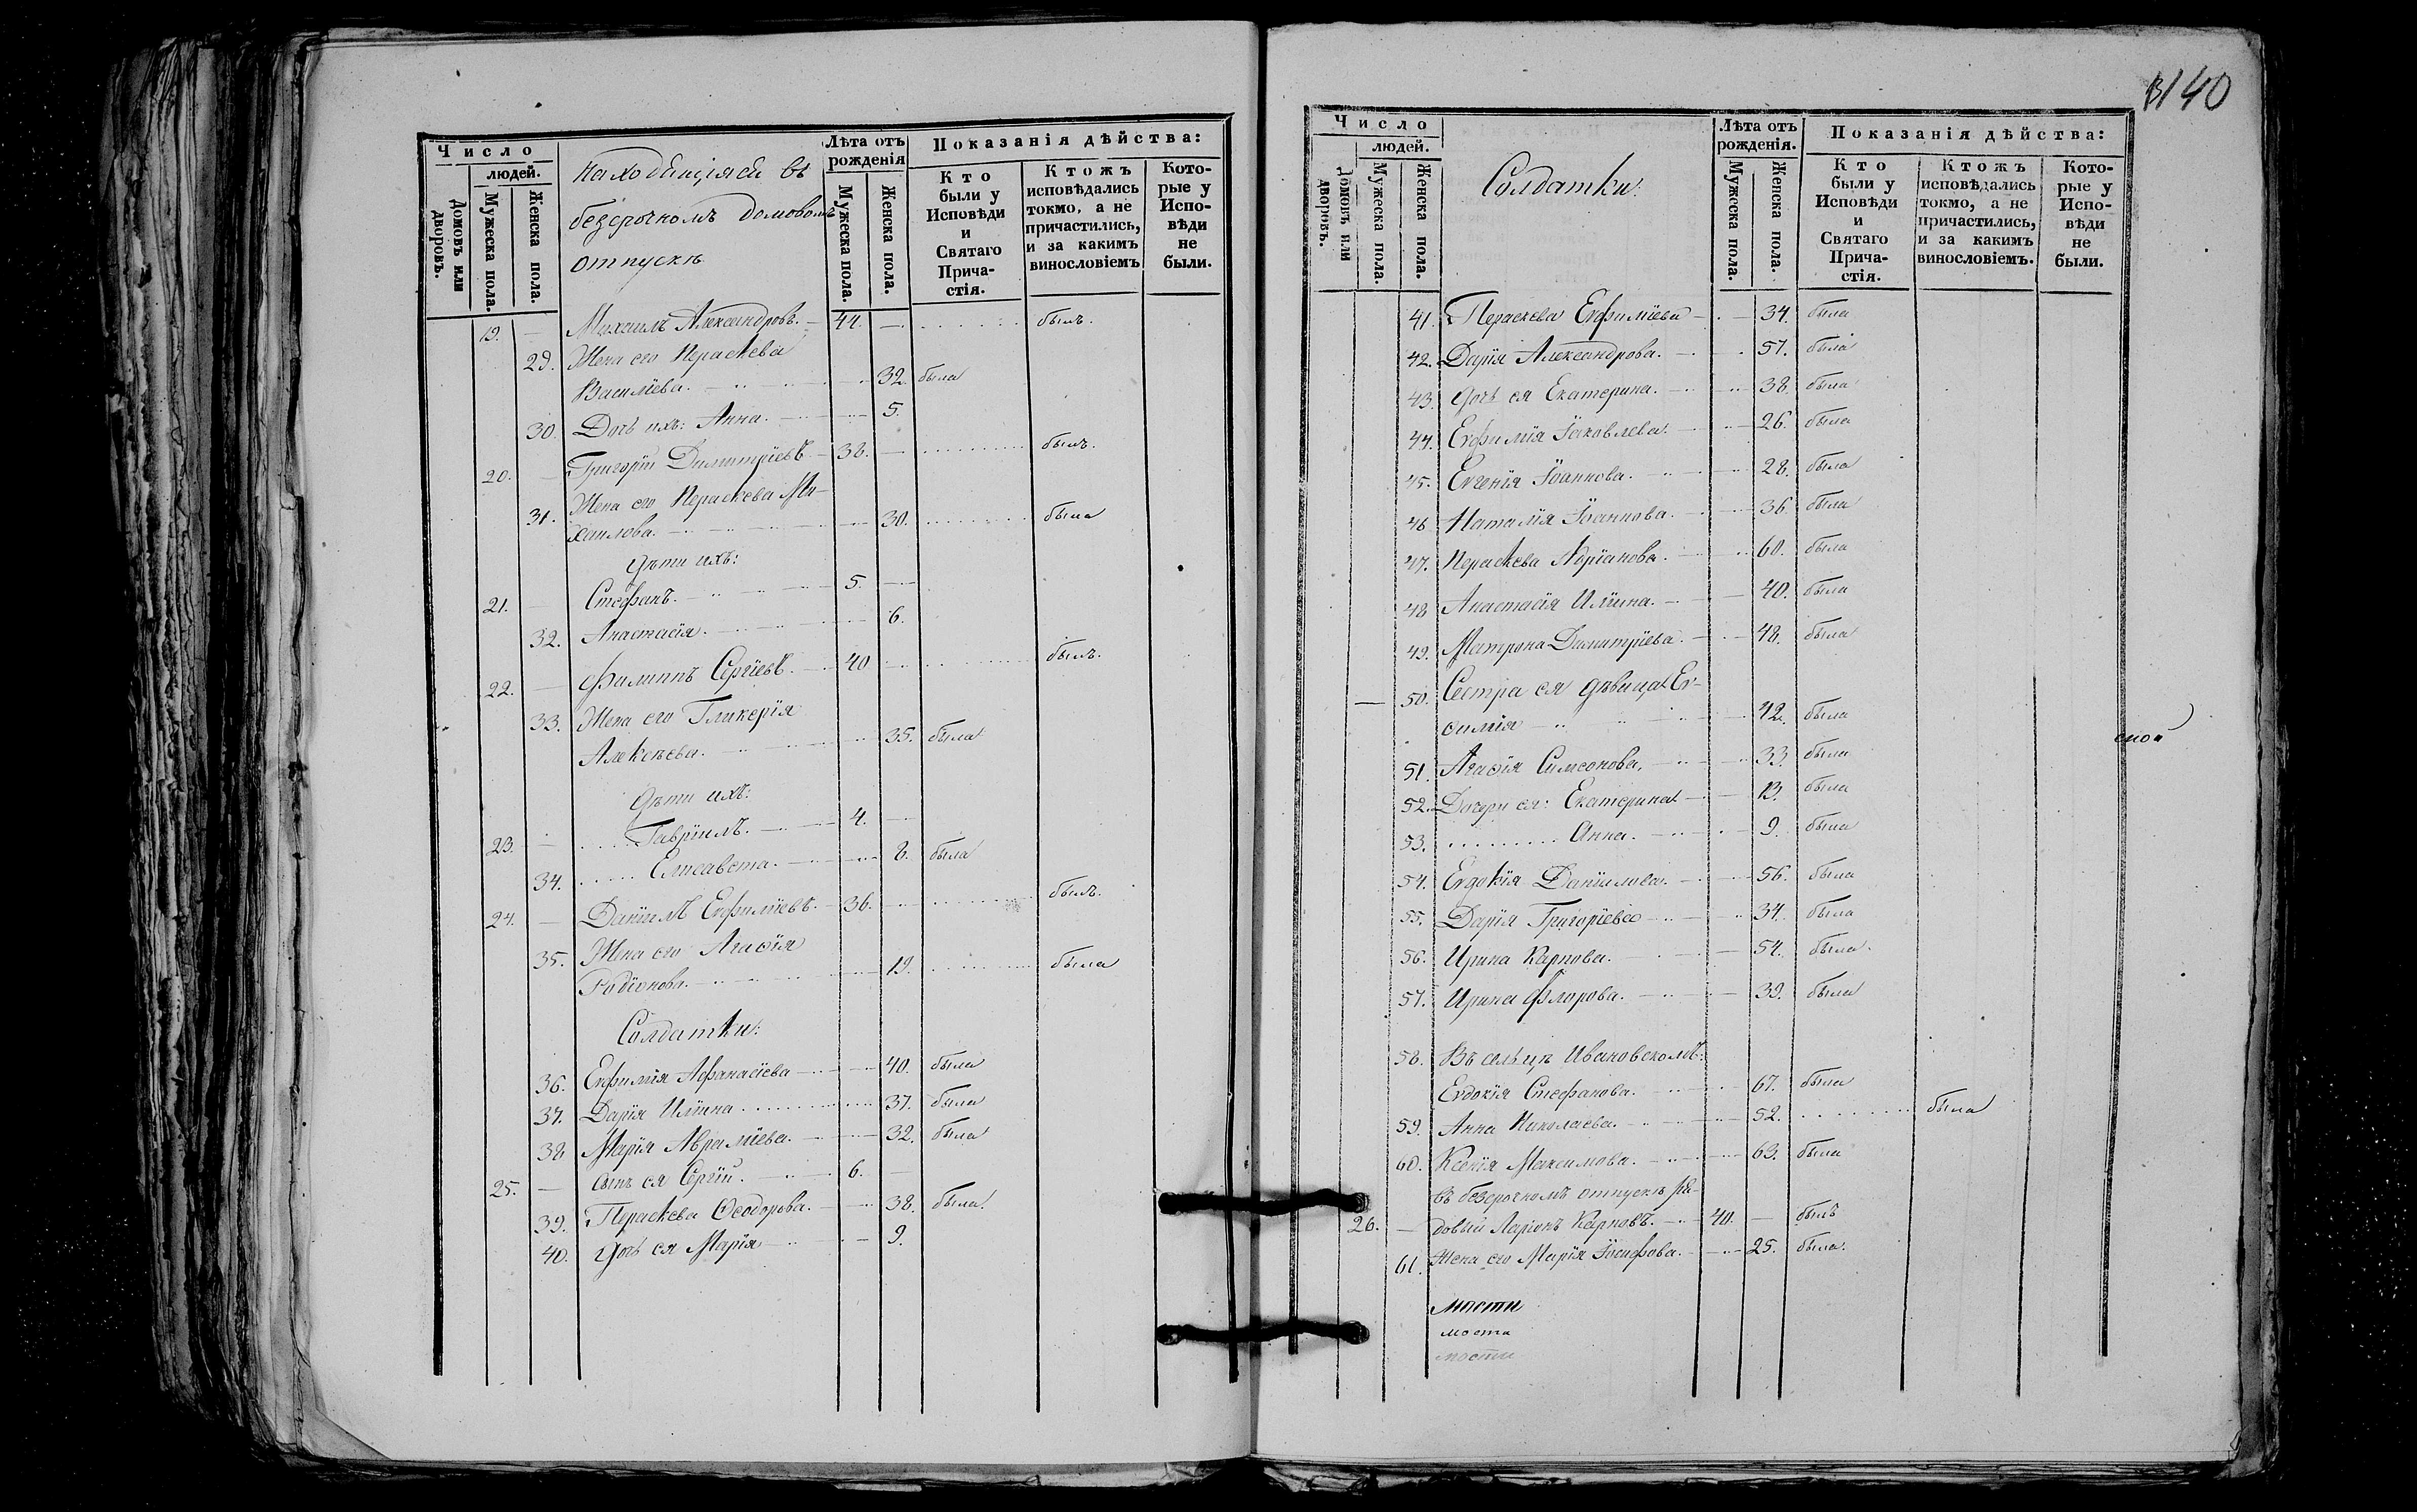 140
Число
людей.
Домовъ или дворовъ.
Мужеска пола.
Женска пола.
Находящіяся въ
безсрочномъ домовомъ
отпускѣ
Лѣта отъ рожденія
Мужеска пола.
Женска пола.
Показанія дѣйства:
Кто были у Исповѣди и Святаго Причастія.
Ктожъ исповѣдались токмо, а не причастились, и за какимъ винословіемъ
Которые у Исповѣди не были.
19. — Михаилъ Александровъ. — 44. — былъ.
29. Жена его Параскева
Василіева. — 32. была
30. Дочь ихъ: Анна. — 5.
20. — Григорій Димитріевъ — 38. — былъ.
31. Жена его Параскева Ми-
хаилова. — 30. была
Дѣти ихъ:
21. — Стефанъ. — 5. —
32. Анастасія. — 6.
22. — Филиппъ Сергіевъ. — 40 былъ.
33. Жена его Гликерія
Алексѣева. — 35. была
Дѣти ихъ:
23. — Гавріилъ. — 4. —
34. Елисавета. — 8. была
24. — Даніилъ Евфиміевъ. — 36. былъ.
35. Жена его Агаѳія
Радіонова. — 19. была
Солдатки:
36. Евфимія Афанасіева — 40. была
37. Дарія Иліина 37. была
38 Марія Авраміева. — 32. была
25. — Сынъ ея Сергій. — 6. —
39. Параскева Ѳеодорова. — 38. была.
40. Дочь ея Марія — 9.
Число
людей.
Домовъ или дворовъ.
Мужеска пола.
Женска пола.
Солдатки:
Лѣта отъ рожденія.
Мужеска пола.
Женска пола.
Показанія дѣйства:
Кто были у Исповѣди и Святаго Причастія.
Ктожъ исповѣдались токмо, а не причастились, и за какимъ винословіемъ.
Которые у Исповѣди не были.
41. Параскева Евфиміева — 34. была
42. Дарія Александрова. — 57. была
43. Дочь ея Екатерина. — 38. была
44. Евфимія Іаковлева. — 26. была
45. Евгенія Іоаннова. — 28. была
46 Наталія Іоаннова. — 36. была
47. Параскева Адріанова. — 60. была
48 Анастасія Иліина. — 40. была
49. Матрона Димитріева. — 48. была
— 50. Сестра ея дѣвица Ев-
фимія — 42. была
51. Агаѳія Симеонова. — 33. была
52. Дочери ея: Екатерина — 13. была
53. Анна. — 9. была
54. Евдокія Даніилова. — 56. была
55. Дарія Григоріева — 34. была
56. Ирина Карпова. — 54. была.
57. Ирина Флорова. — 39. была
58. Въ сельцѣ Ивановскомъ:
Евдокія Стефанова. — 67. была
59. Анна Николаева. — 52. была
60. Ксенія Максимова. — 63. была
въ безсрочномъ отпускѣ ря-
26. — довый Ларіонъ Карповъ. — 40. — былъ
61. Жена его Марія Іосифова. — 25. была.
мости
моста
мости